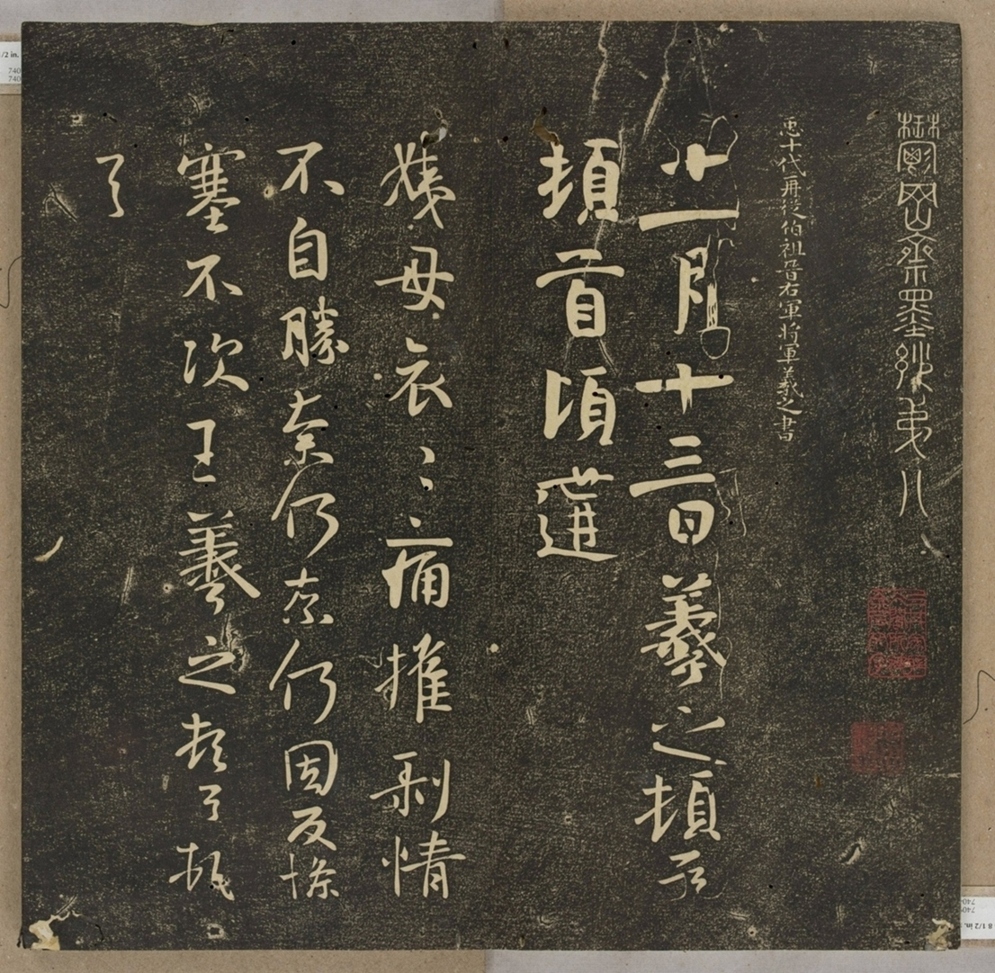 鬱岡齋墨妙弟八
臣十代再從伯祖晉右軍將軍羲之書
十一月十三日羲之頓首
頓首頃遘
姨母哀〻痛摧剝情
不自勝奈何奈何因反慘
塞不次王羲之頓首頓
首